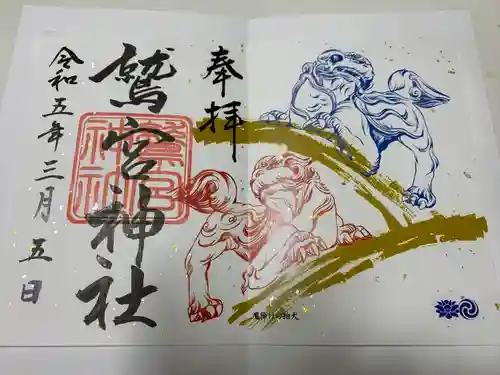 奉拝
鷲宮神社
令和五年三月五日
鷲宮神社
魔除けの狛犬